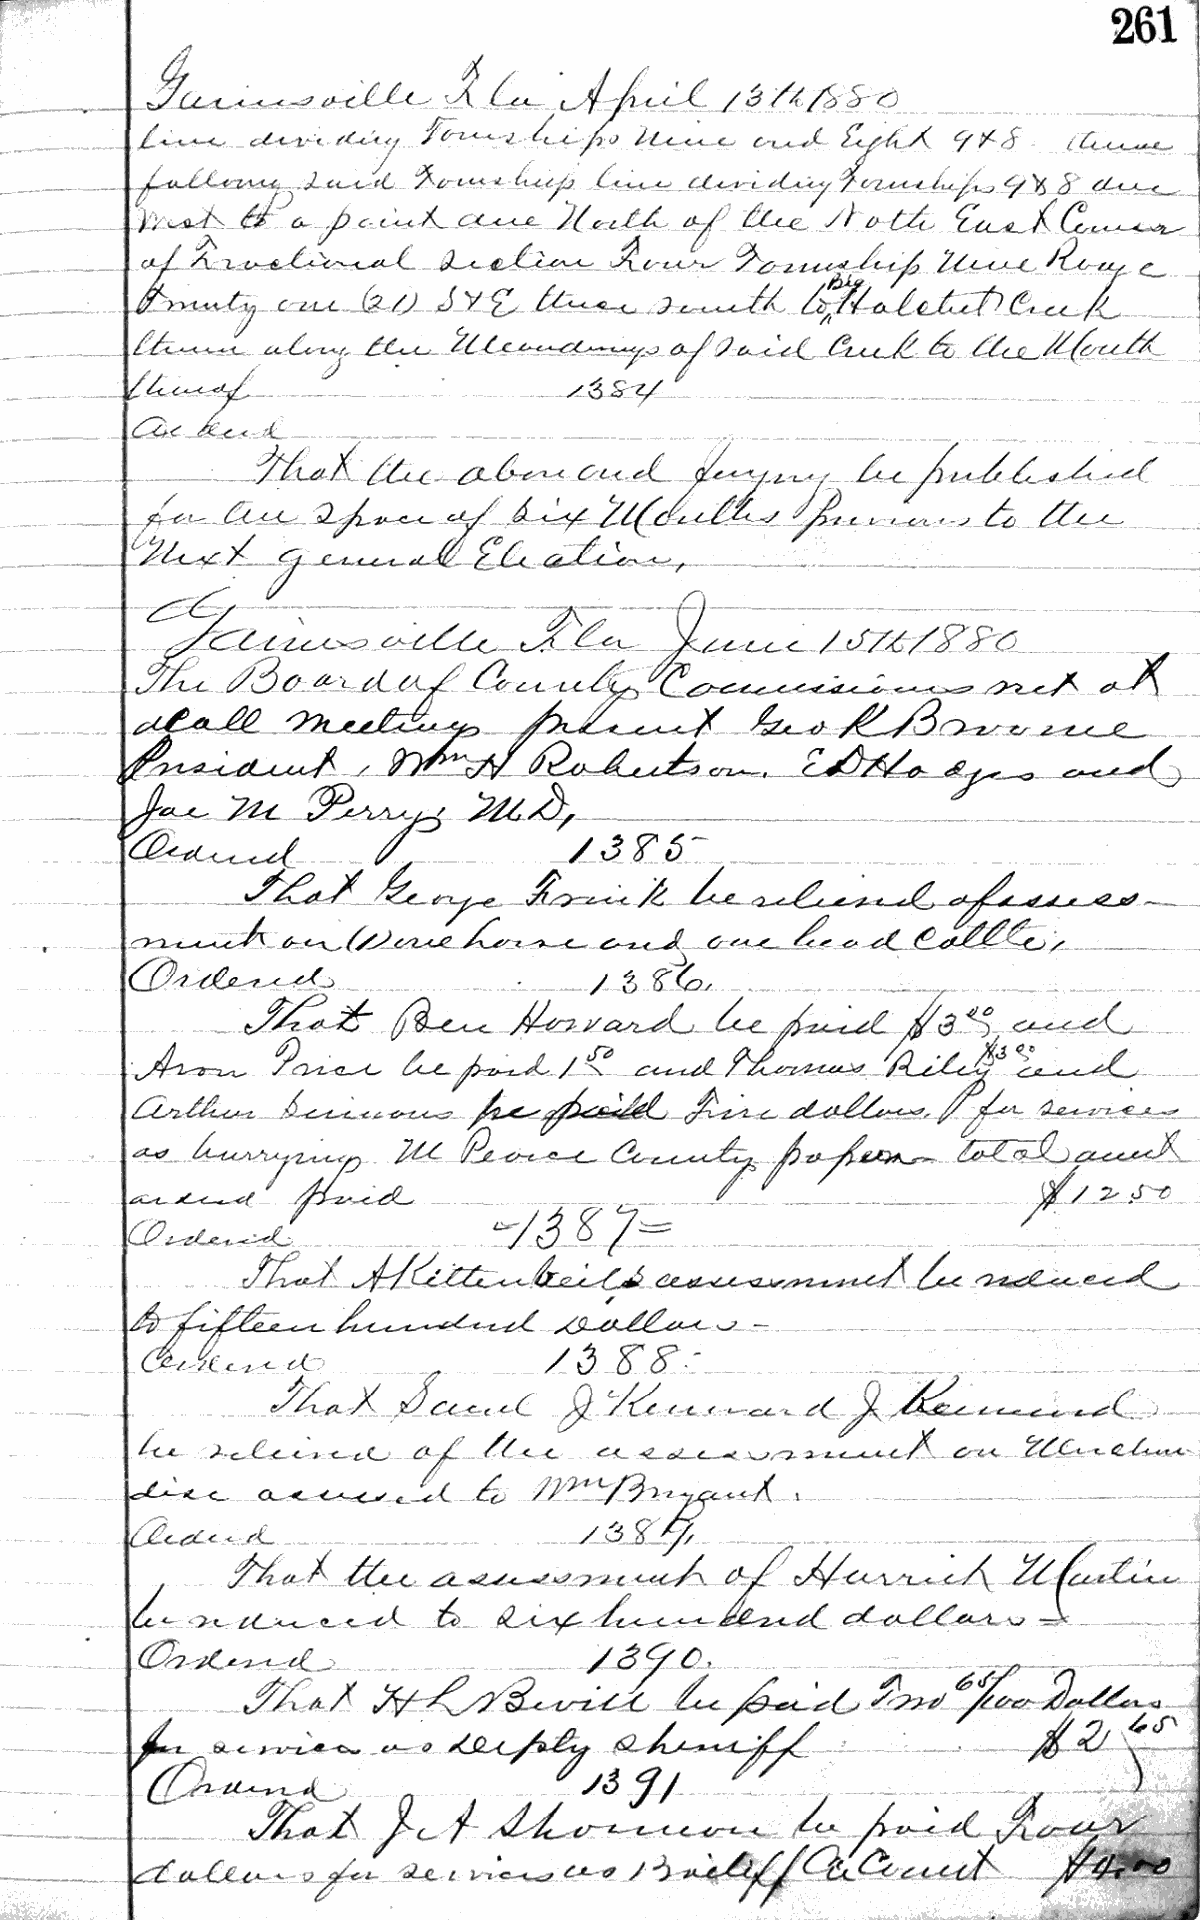 261
Gainesville Fla April 13th 1880
line dividing Townships Nine and Eight 9 & 8 thence
following said Township line dividing Townships 9 & 8 due
West to a point due North of the North East Corner
of Fractional Section Four Township Nine Range
Twenty one (21) S & E thence south to Big Hatchet Creek
thence along the Meanderings of said Creek to the Mouth
thereof 1384
Ordered
That the above and be published
for the space of six Months previous to the
Next general Election,
Gainesville Fla June 15th 1880
The Board of County Commissioners met at
a call meeting present Geo K Broome
President, Wm H Robertson. E D Hodges and
Joe M Perry, M.D,
Ordered 1385
That George Frink be relieved of assess-
ment on (1) one horse and one head Cattle,
Ordered 1386.
That Ben Howard be paid $3.00 and
Aron Price be paid 1 50 and Thomas Riley $3 00 and
Arthur Simmons be paid Five dollars for services
as burrying M Pearce County paper total amt
ordered paid $12.50
Ordered -1387=
That A Kittenbeils assessment be reduced
to fifteen hundred Dollars-
Ordered 1388:
That Saml J Kennard J Kennard
be relieved of the assessment on Merchan
dise assessed to Wm Bryant.
Ordered 1389,
That the assessment of Herrick Martin
be reduced to six hundred dollars =
Ordered 1390.
That H L Bevill be paid Two 65/100 Dollars
for services as Depty Sheriff $2 65
Ordered 1391
That J A Shannon be paid Four
dollars for services as Bailiff Ct $4.00